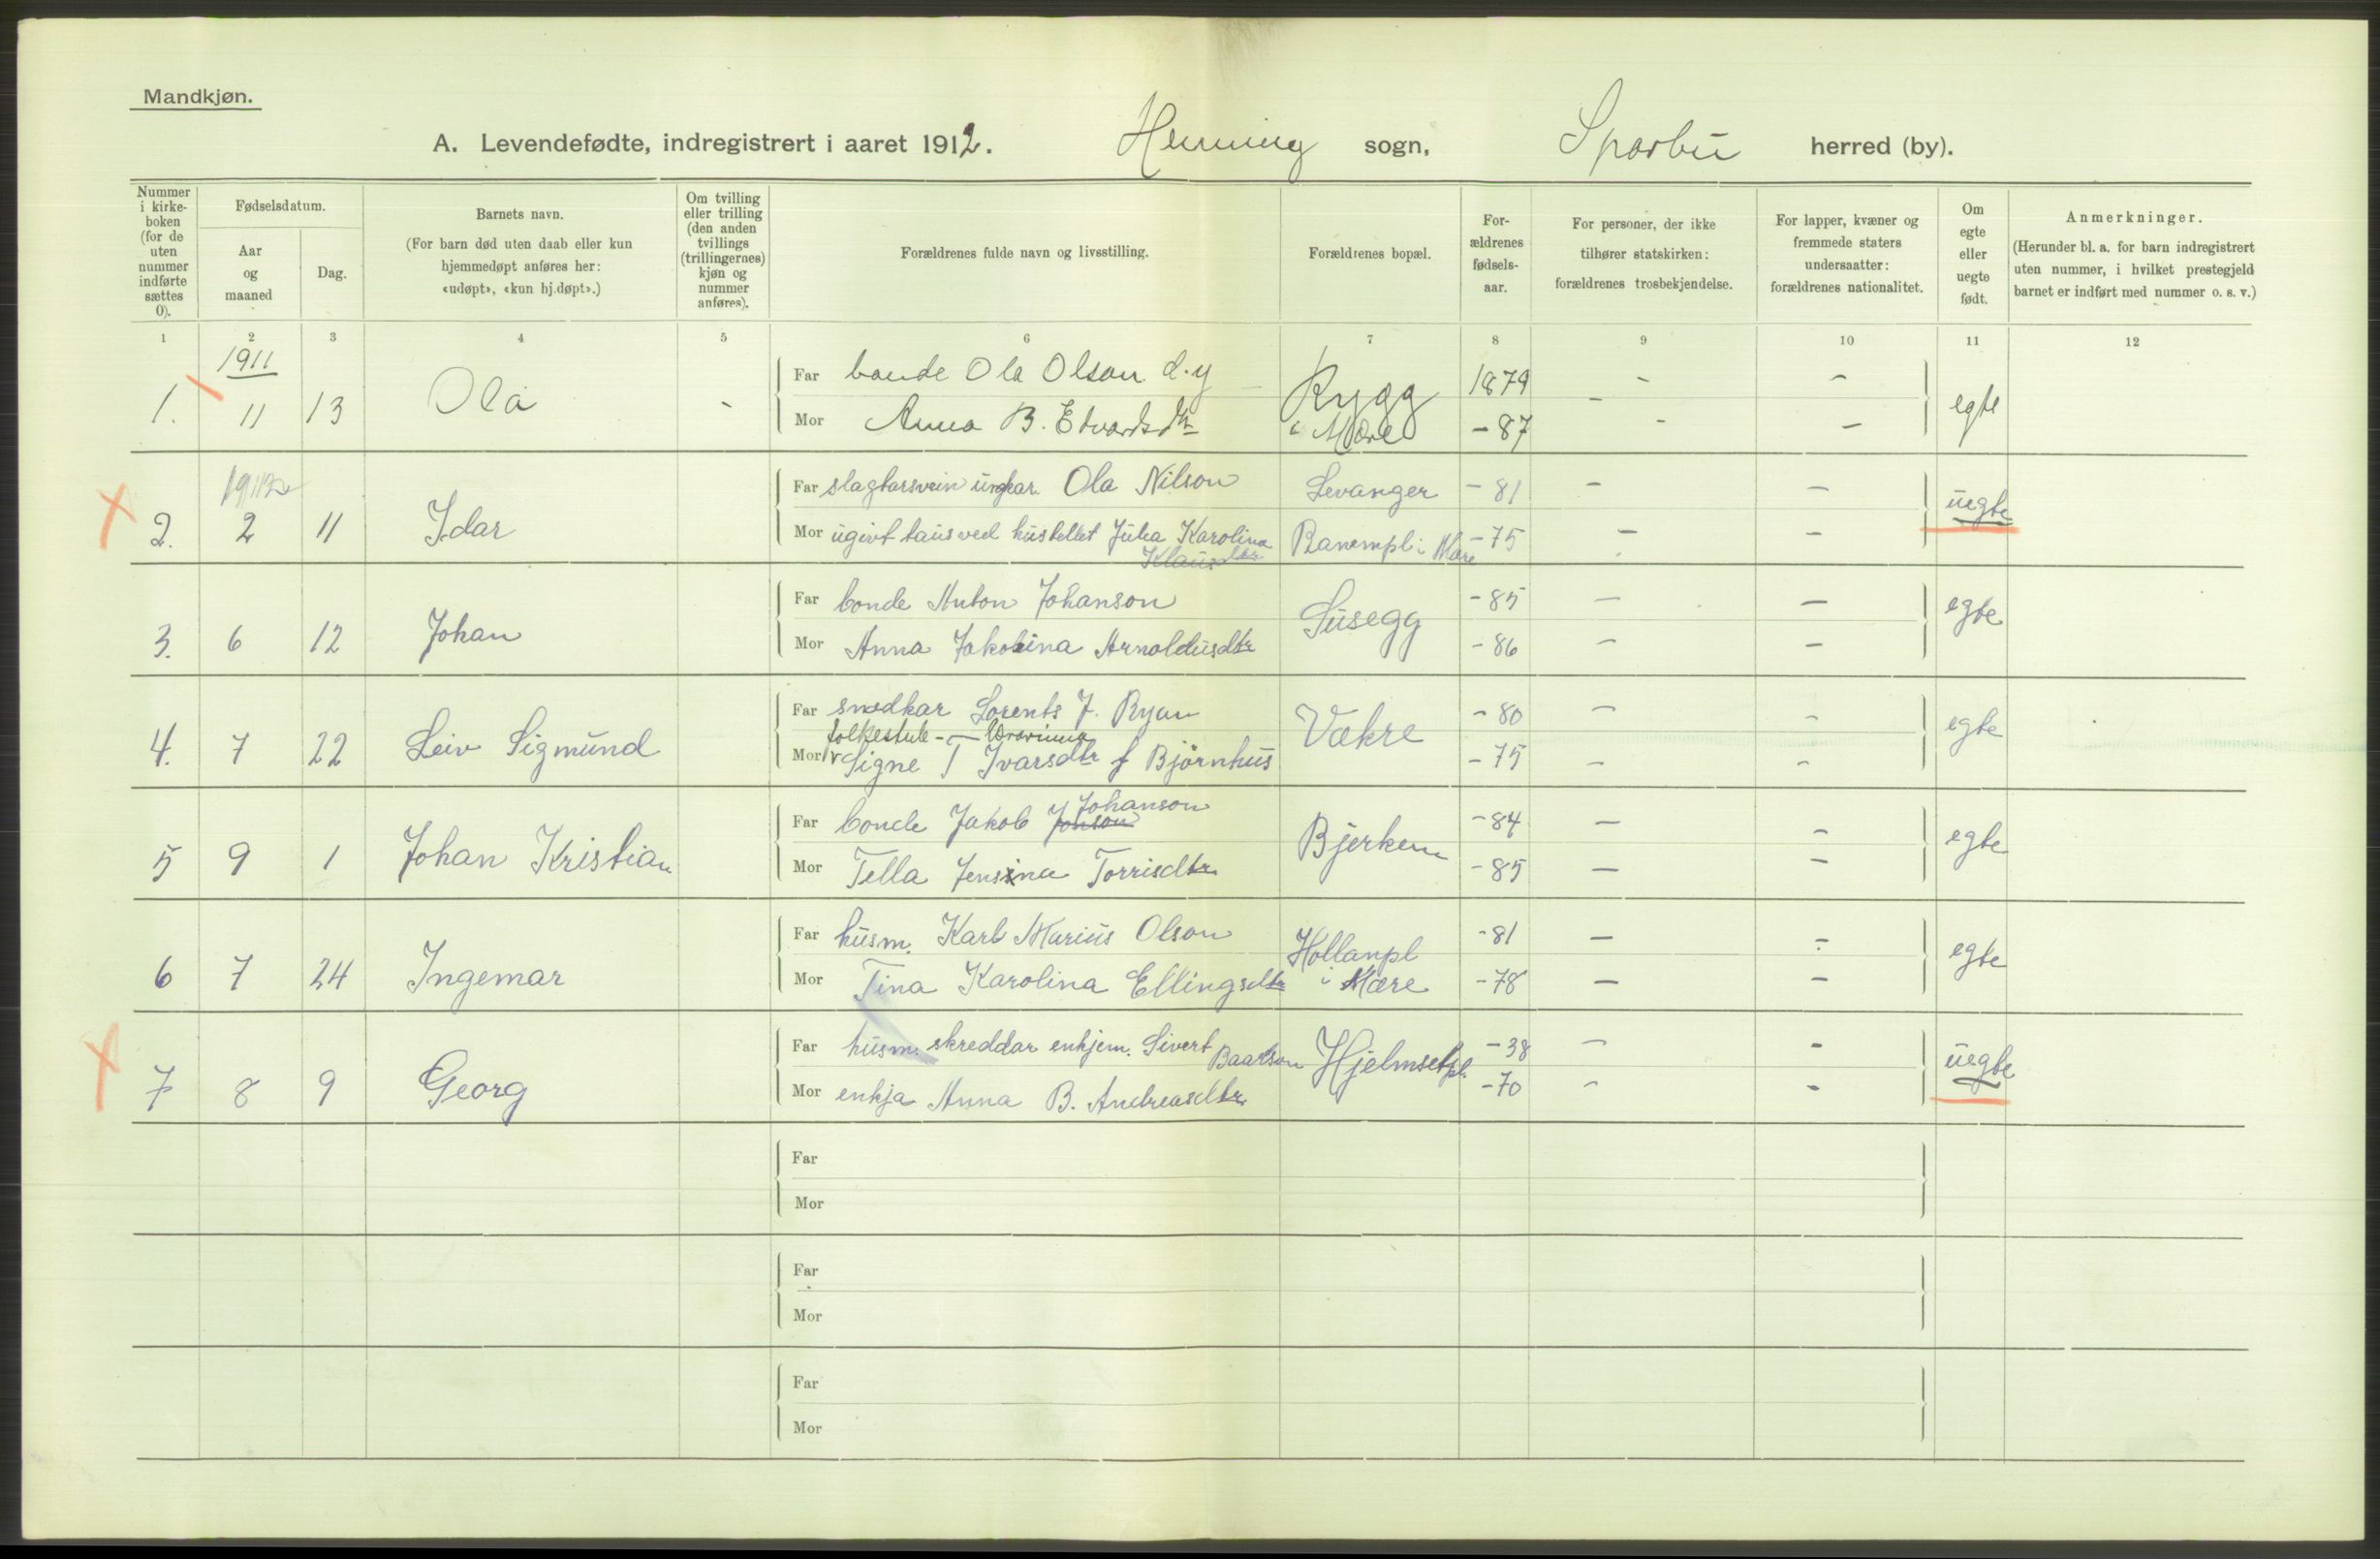 Mandkjøn.
A. Levendefødte, indregistrert i aaret 1912. Henning sogn, Sparbu herred (by).
Nummer i kirke-boken (for de uten nummer indførte sættes 0).
Fødselsdatum.
Aar og maaned
Dag.
Barnets navn.
(For barn død uten daab eller kun hjemmedøpt anføres her: «udøpt», «kun hj.døpt».)
Om tvilling eller trilling (den anden tvillings (trillingernes) kjøn og nummer anføres).
Forældrenes fulde navn og livsstilling.
Forældrenes bopæl.
For-ældrenes fødsels-aar.
For personer, der ikke tilhører statskirken: forældrenes trosbekjendelse.
For lapper, kvæner og fremmede staters undersaatter: forældrenes nationalitet.
Om egte eller uegte født.
Anmerkninger.
(Herunder bl. a. for barn indregistrert uten nummer, i hvilket prestegjeld barnet er indført med nummer o. s. v.)
1 2 3 4 5 6 7 8 9 10 11 12
1911
1. 11 13 Ola - Far bonde Ola Olson d.y Rygg 1879 - - egte
Mor Anna B. Edvardsdtr i Mære - 87 - -
1912
2. 2 11 Idar Far slagtarsvein ungkar Ola Nilson Levanger - 81 - - uegte
Mor ugivt taus ved hustellet Julia Karolina Klausdtr Ranempl i Mære - 75 - -
3. 6 12 Johan Far bonde Anton Johanson Susegg - 85 - - egte
Mor Anna Jakobina Arnoldusdtr - 86 - -
4. 7 22 Leiv Sigmund Far snedkar Lorents J. Ryan Vækre - 80 - - egte
folkeskule-lærarinna
Mor Signe T Ivarsdtr f Bjørnhus - 75 - -
5 9 1 Johan Kristian Far bonde Jakob Jonson Johanson Bjerkem - 84 - - egte
Mor Tella Jensina Torrisdtr - 85 - -
6 7 24 Ingemar Far husm. Karl Marius Olson Hollanpl - 81 - - egte
Mor Tina Karolina Ellingsdtr i Mære - 78 - -
7 8 9 Georg Far husm. skreddar enkjem. Sivert Baardson Hjelmsetpl. - 38 - - uegte
Mor enkja Anna B. Andreasdtr - 70 - -
Far
Mor
Far
Mor
Far
Mor